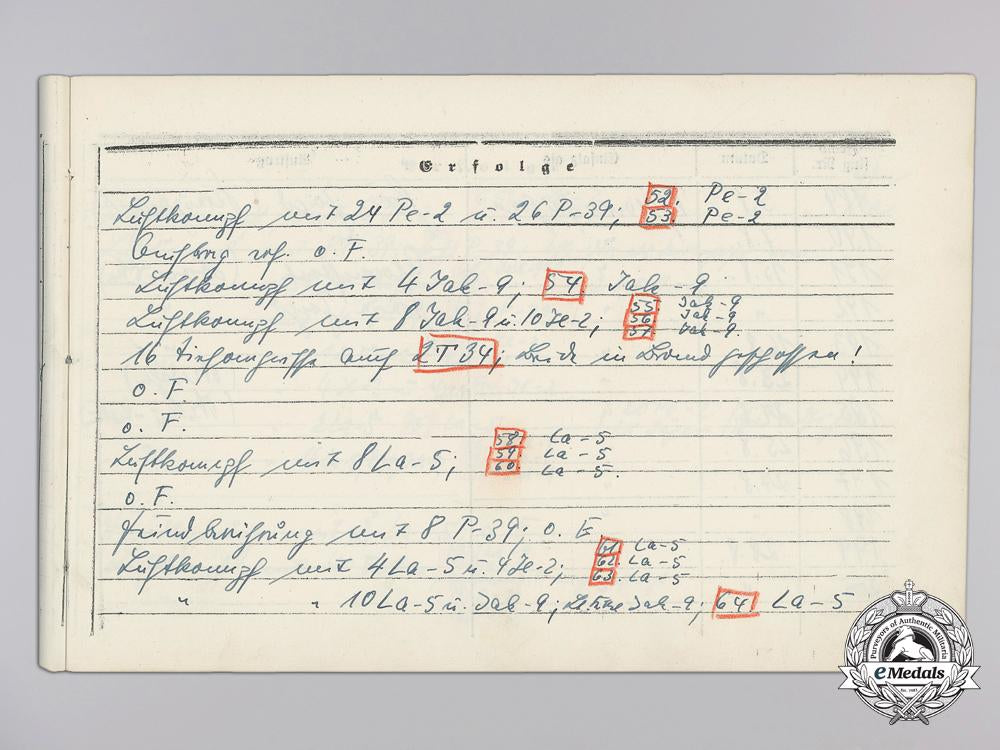 Erfolge
Luftkampf mit 24 Pe-2 u. 26 P-39; 52. Pe-2
53. Pe-2
o. F.
Luftkampf mit 4 Jak-9; 54. Jak-9
Luftkampf mit 8 Jak-9 u. 10 Je-2; 55. Jak-9
56. Jak-9
57. Jak-9.
16 Tiefangriffe auf 2 T 34; Beide in Brand geschossen!
o. F.
o. F.
Luftkampf mit 8 La-5; 58. La-5
59. La-5
60. La-5.
o. F.
Feindberührung mit 8 P-39; o. E
Luftkampf mit 4 La-5 u. 4 Je-2; 61. La-5
62. La-5
63. La-5
" " 10 La-5 u. Jak-9; Jak-9; 64. La-5
Purveyors of Authentic Militaria
eMedals